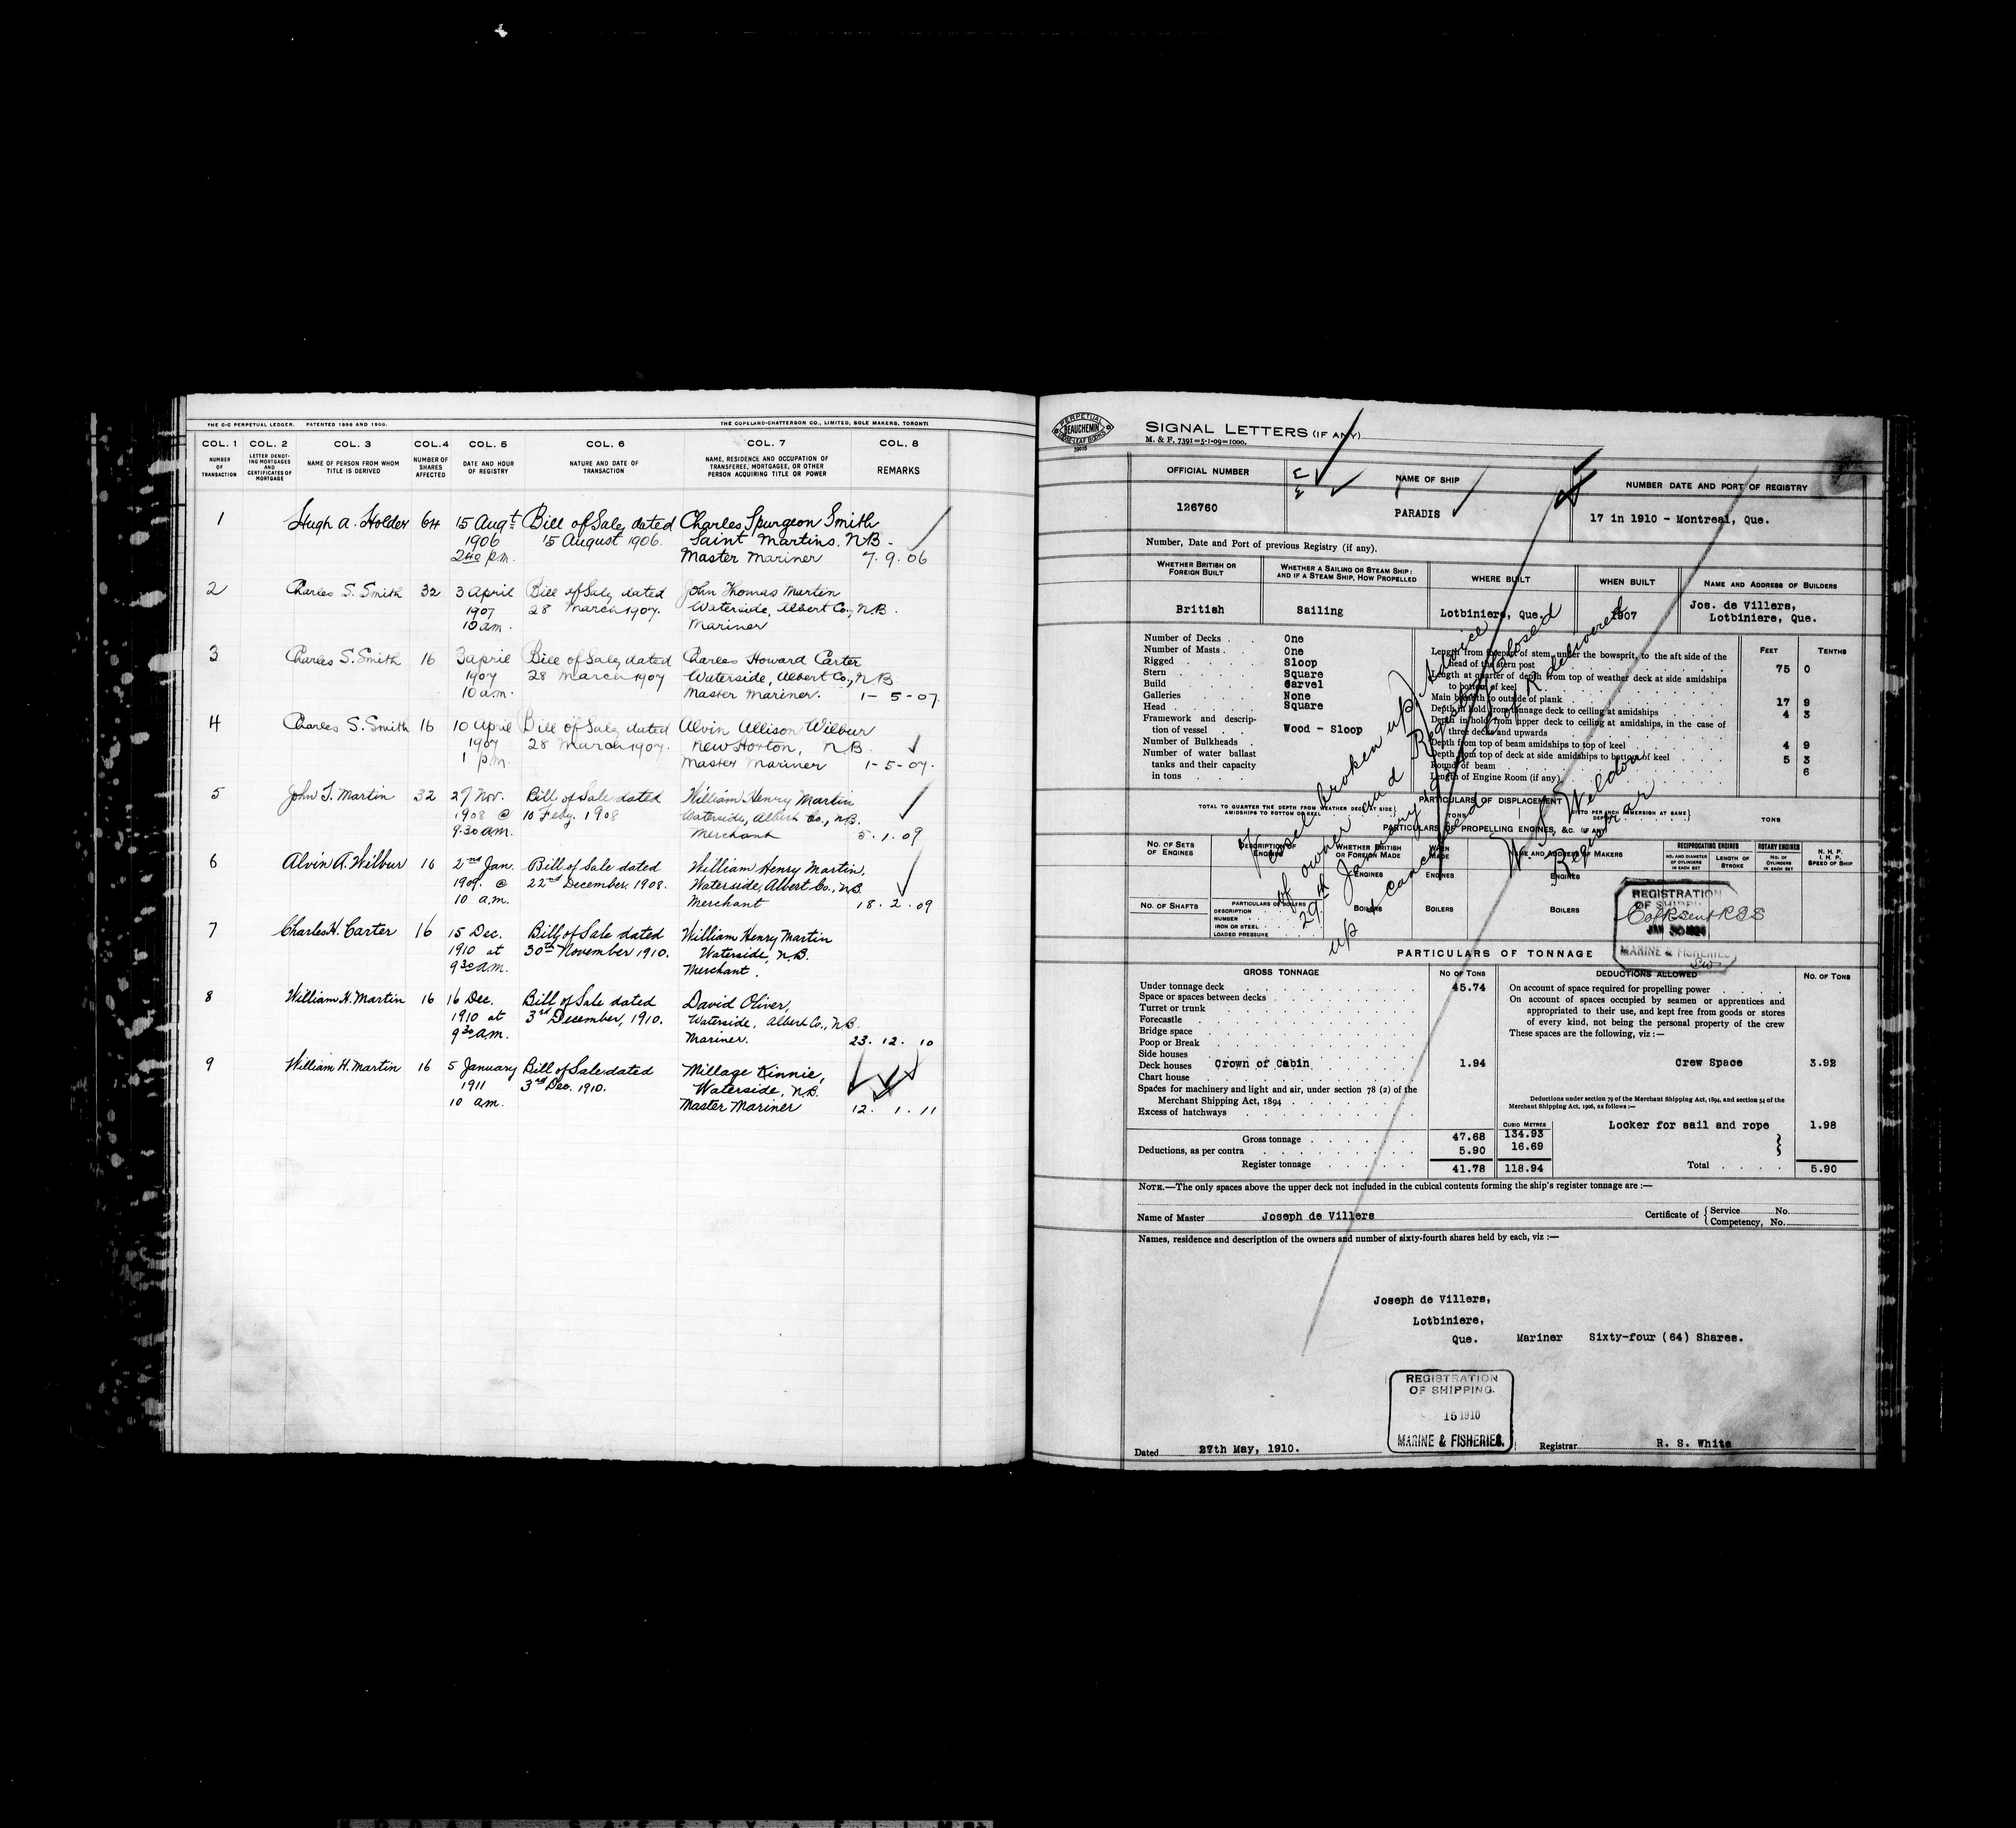 THE C-C PERPETUAL LEDGER. PATENTED 1896 AND 1900.
THE COPELAND-CHATTERSON CO., LIMITED, SOLE MAKERS, TORONTO
COL. 1 COL. 2 COL. 3 COL. 4 COL. 5 COL. 6 COL. 7 COL. 8
NUMBER OF TRANSACTION
LETTER DENOTING MORTGAGES AND CERTIFICATES OF MORTGAGE
NAME OF PERSON FROM WHOM TITLE IS DERIVED
NUMBER OF SHARES AFFECTED
DATE AND HOUR OF REGISTRY
NATURE AND DATE OF TRANSACTION
NAME, RESIDENCE AND OCCUPATION OF TRANSFEREE, MORTGAGEE, OR OTHER PERSON ACQUIRING TITLE OR POWER
REMARKS
1 Hugh A. Holder 64 15 Augt Bill of Sale, dated Charles Spurgeon Smith
1906 15 August 1906. Saint Martins. N.B.
2.40 p.m. Master Mariner 7.9.06
2 Charles S. Smith 32 3 April Bill of Sale, dated John Thomas Martin
1907 28 March 1907. Waterside, Albert Co., N.B.
10 am. Mariner
3 Charles S. Smith 16 3 april Bill of Sale, dated Charles Howard Carter
1907 28 March 1907 Waterside, Albert Co., N.B
10 a.m. Master Mariner. 1-5-07.
4 Charles S. Smith 16 10 April Bill of Sale, dated Alvin Allison Wilbur
1907 28 March 1907. New Horton, N.B.
1 p.m. Master Mariner 1-5-07.
5 John T. Martin 32 27 Nov. Bill of Sale dated William Henry Martin
1908 @ 10 Feby. 1908 Waterside, Albert Co., N.B.
9.30 am. Merchant 5.1.09
6 Alvin A. Wilbur 16 2nd Jan. Bill of Sale dated William Henry Martin,
1909. @ 22nd December. 1908. Waterside, Albert Co., N.B.
10 a.m. Merchant 18.2.09
7 Charles H. Carter 16 15 Dec. Bill of Sale dated William Henry Martin
1910 at 30th November 1910. Waterside, N.B.
9.30 a.m. Merchant.
8 William H. Martin 16 16 Dec. Bill of Sale dated David Oliver,
1910 at 3rd December, 1910. Waterside, Albert Co., N.B.
9.30 a.m. Mariner. 23.12.10
9 William H. Martin 16 5 January Bill of Sale dated Millage Kinnie,
1911 3rd Dec. 1910. Waterside, N.B.
10 am. Master Mariner 12.1.11
PERPETUAL
BEAUCHEMIN
LOOSE-LEAF BOOKS
SIGNAL LETTERS (IF ANY)
M. & F. 7391=5-1-09=1000.
OFFICIAL NUMBER
NAME OF SHIP
NUMBER DATE AND PORT OF REGISTRY
126760
PARADIS
17 in 1910 - Montreal, Que.
Number, Date and Port of previous Registry (if any).
WHETHER BRITISH OR FOREIGN BUILT
WHETHER A SAILING OR STEAM SHIP: AND IF A STEAM SHIP, HOW PROPELLED
WHERE BUILT
WHEN BUILT
NAME AND ADDRESS OF BUILDERS
British
Sailing
Lotbiniere, Que.
1907
Jos. de Villers,
Lotbiniere, Que.
Number of Decks One
Number of Masts One
Rigged Sloop
Stern Square
Build Carvel
Galleries None
Head Square
Framework and description of vessel Wood - Sloop
Number of Bulkheads
Number of water ballast
tanks and their capacity
in tons
FEET TENTHS
Length from forepart of stem, under the bowsprit, to the aft side of the
head of the stern post 75 0
Length at quarter of depth from top of weather deck at side amidships
to bottom of keel
Main breadth to outside of plank 17 9
Depth in hold from tonnage deck to ceiling at amidships 4 3
Depth in hold from upper deck to ceiling at amidships, in the case of
three decks and upwards
Depth from top of beam amidships to top of keel 4 9
Depth from top of deck at side amidships to bottom of keel 5 3
Round of beam 6
Length of Engine Room (if any)
Vessel broken up. Advice
of owner and Register closed
29th January 19
up & cancelled
Registrar
PARTICULARS OF DISPLACEMENT
TOTAL TO QUARTER THE DEPTH FROM WEATHER DECK AT SIDE AMIDSHIPS TO BOTTOM OF KEEL
TONS
DITTO PER INCH IMMERSION AT SAME DEPTH
TONS
PARTICULARS OF PROPELLING ENGINES, &C. (IF ANY)
NO. OF SETS OF ENGINES
DESCRIPTION OF ENGINES
WHETHER BRITISH OR FOREIGN MADE
WHEN MADE
NAME AND ADDRESS OF MAKERS
RECIPROCATING ENGINES
NO. AND DIAMETER OF CYLINDERS IN EACH SET
LENGTH OF STROKE
ROTARY ENGINES
NO. OF CYLINDERS IN EACH SET
N. H. P.
I. H. P.
SPEED OF SHIP
ENGINES ENGINES ENGINES
NO. OF SHAFTS
PARTICULARS OF BOILERS
DESCRIPTION
NUMBER
IRON OR STEEL
LOADED PRESSURE
BOILERS BOILERS BOILERS
REGISTRATION
OF SHIPPING
MARINE & FISHERIES
PARTICULARS OF TONNAGE
GROSS TONNAGE
NO OF TONS
DEDUCTIONS ALLOWED
NO. OF TONS
Under tonnage deck 45.74
Space or spaces between decks
Turret or trunk
Forecastle
Bridge space
Poop or Break
Side houses
Deck houses Crown of Cabin 1.94
Chart house
Spaces for machinery and light and air, under section 78 (2) of the
Merchant Shipping Act, 1894
Excess of hatchways
On account of space required for propelling power
On account of spaces occupied by seamen or apprentices and
appropriated to their use, and kept free from goods or stores
of every kind, not being the personal property of the crew
These spaces are the following, viz :—
Crew Space 3.92
Deductions under section 79 of the Merchant Shipping Act, 1894, and section 54 of the
Merchant Shipping Act, 1906, as follows :—
Locker for sail and rope 1.98
CUBIC METRES
Gross tonnage 47.68 134.93
Deductions, as per contra 5.90 16.69
Register tonnage 41.78 118.94
Total 5.90
NOTE.—The only spaces above the upper deck not included in the cubical contents forming the ship's register tonnage are :—
Name of Master Joseph de Villers
Certificate of { Service No.
Competency, No.
Names, residence and description of the owners and number of sixty-fourth shares held by each, viz :—
Joseph de Villers,
Lotbiniere,
Que. Mariner Sixty-four (64) Shares.
REGISTRATION
OF SHIPPING.
15 1910
MARINE & FISHERIES.
Dated 27th May, 1910.
Registrar R. S. White